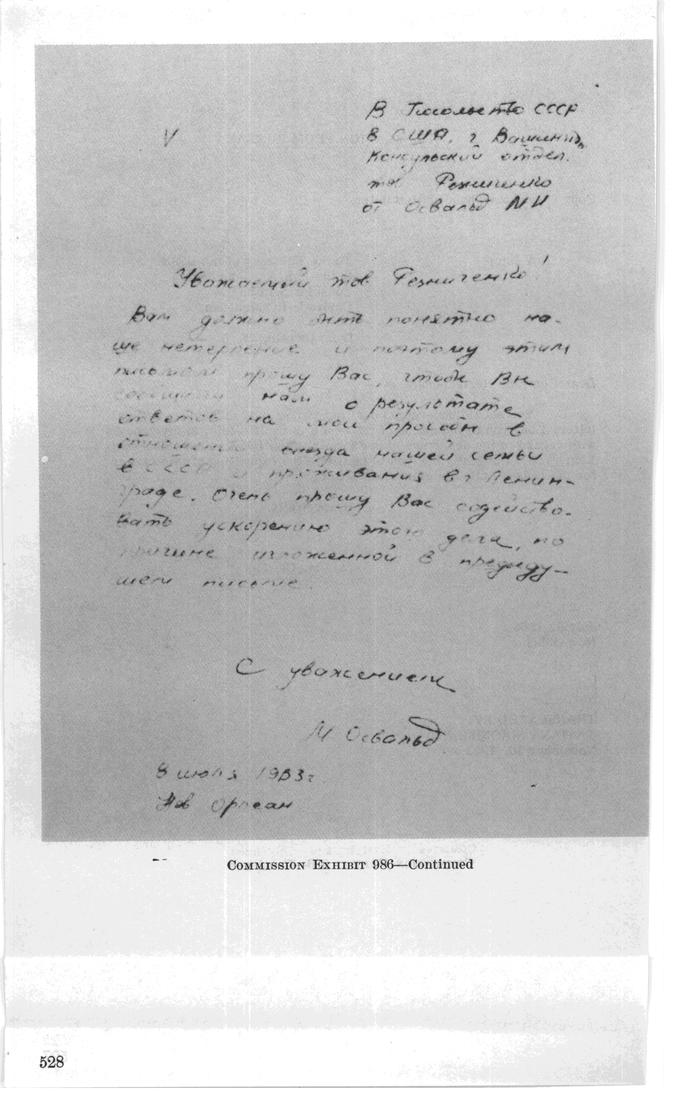 В Посольство СССР
в США, г. Вашингт.
Консульский отдел.
тов Резниченко
от Освальд М Н
Уважаемый тов Резниченко!
Вам должно быть понятно на-
ше нетерпение и поэтому этим
письмом прошу Вас, чтобы Вы
сообщили нам о результате
ответов на мои просьбы в
отношении въезда нашей семьи
в СССР и проживания в г Ленин-
граде. Очень прошу Вас содейство-
вать ускорению этого дела, по
причине изложенной в предыду-
щем письме.
С уважением
М Освальд
8 июля 1963 г.
Нов Орлеан
COMMISSION EXHIBIT 986—Continued
528